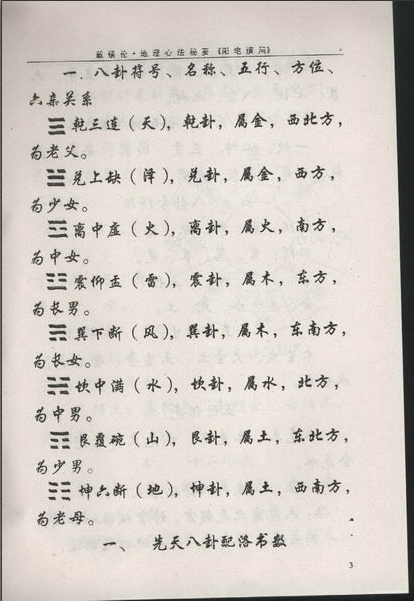 戴锡伦·地理心法秘要《阳宅演局》
一.八卦符号、名称、五行、方位、
六亲关系
☰乾三连（天），乾卦，属金，西北方，
为老父。
☱兑上缺（泽），兑卦，属金，西方，
为少女。
☲离中虚（火），离卦，属火，南方，
为中女。
☳震仰盂（雷），震卦，属木，东方，
为长男。
☴巽下断（风），巽卦，属木，东南方，
为长女。
☵坎中满（水），坎卦，属水，北方，
为中男。
☶艮覆碗（山），艮卦，属土，东北方，
为少男。
☷坤六断（地），坤卦，属土，西南方，
为老母。
一、 先天八卦配洛书数
3